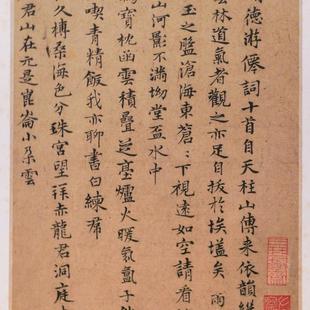 德游僊詞十首自天柱山傳来依韻繼
林道氣者觀之亦足自拔於埃壒矣 雨
玉之盤滄海東蒼〻下視遠如空請看
山河影不滿坳堂盃水中
寳枕函雲積疊芝臺爐火暖氤氳子
喫青精飯我亦聊書白練裙
久榑桑海色分珠宮望拜赤龍君洞庭
君山在元是崑崙小朵雲